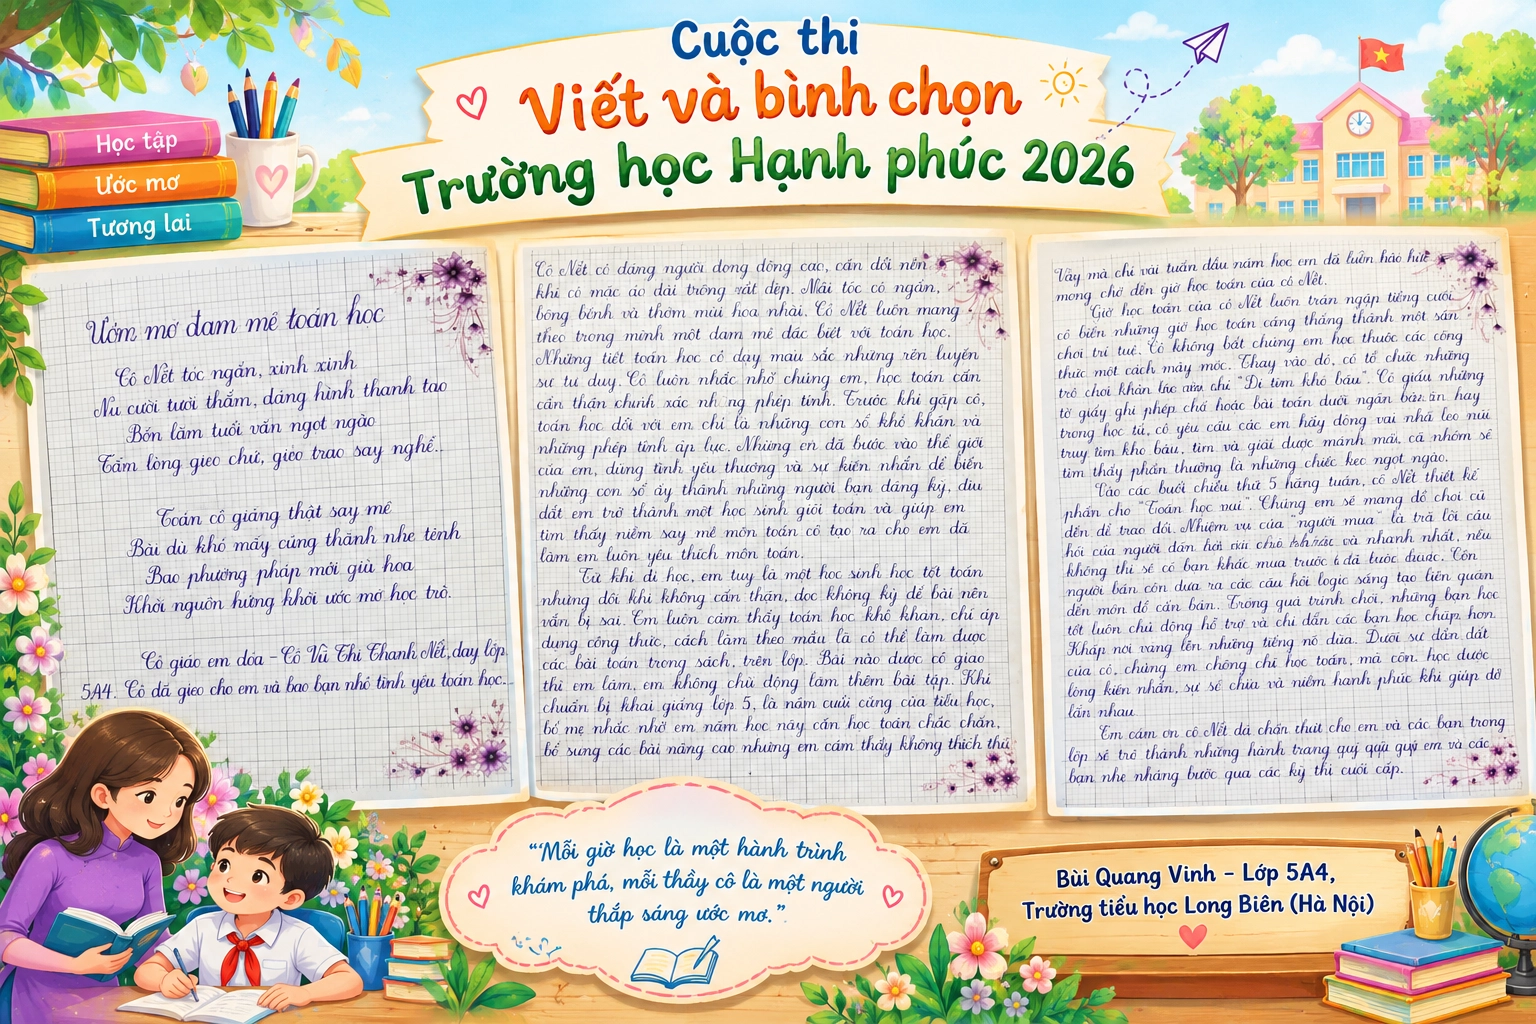 Cuộc thi
Viết và bình chọn
Trường học Hạnh phúc 2026
Học tập
Ước mơ
Tương lai
Ươm mơ đam mê toán học
Cô Nết tóc ngắn, xinh xinh
Nụ cười tươi thắm, dáng hình thanh tao
Bốn lăm tuổi vẫn ngọt ngào
Tấm lòng gieo chữ, gieo trao say nghề..
Toán cô giảng thật say mê
Bài dù khó mấy cũng thành nhẹ tênh
Bao phương pháp mới giù hoa
Khơi nguồn hứng khởi ước mơ học trò.
Cô giáo em đóa - Cô Vũ Thị Thanh Nết, dạy lớp
5A4. Cô đã gieo cho em và bao bạn nhỏ tình yêu toán học...
Cô Nết có dáng người dong dỏng cao, cân đối nên
khi cô mặc áo dài trông rất đẹp. Mái tóc cô ngắn,
bồng bềnh và thơm mùi hoa nhài. Cô Nết luôn mang
theo trong mình một đam mê đặc biệt với toán học.
Những tiết toán học cô dạy màu sắc những rèn luyện
sự tư duy. Cô luôn nhắc nhở chúng em, học toán cần
cẩn thận chính xác những phép tính. Trước khi gặp cô,
toán học đối với em chỉ là những con số khô khan và
những phép tính áp lực. Nhưng en đã bước vào thế giới
của em, dùng tình yêu thương và sự kiên nhẫn để biến
những con số ấy thành những người bạn đáng kỳ, dìu
dắt em trở thành một học sinh giỏi toán và giúp em
tìm thấy niềm say mê môn toán cô tạo ra cho em đã
làm em luôn yêu thích môn toán.
Từ khi đi học, em tuy là một học sinh học tốt toán
nhưng đôi khi không cẩn thận, đọc không kỹ đề bài nên
vẫn bị sai. Em luôn cảm thấy toán học khô khan, chỉ áp
dụng công thức, cách làm theo mẫu là có thể làm được
các bài toán trong sách, trên lớp. Bài nào được cô giao
thì em làm, em không chủ động làm thêm bài tập. Khi
chuẩn bị khai giảng lớp 5, là năm cuối cùng của tiểu học,
bố mẹ nhắc nhở em năm học này cần học toán chắc chắn,
bổ sung các bài nâng cao nhưng em cảm thấy không thích thú
Vậy mà chỉ vài tuần đầu năm học em đã luôn háo hức
mong chờ đến giờ học toán của cô Nết.
Giờ học toán của cô Nết luôn tràn ngập tiếng cười
cô biến những giờ học toán căng thẳng thành một sân
chơi trí tuệ. Cô không bắt chúng em học thuộc các công
thức một cách máy móc. Thay vào đó, cô tổ chức những
trò chơi khán "Đi tìm kho báu". Cô giấu những
tờ giấy ghi phép chá hoặc bài toán dưới ngăn bàn hay
trong học tủ, cô yêu cầu các em hãy đóng vai nhà leo núi
truy tìm kho báu, tìm và giải được mảnh mải, cả nhóm sẽ
tìm thấy phần thưởng là những chiếc kẹo ngọt ngào.
Vào các buổi chiều thứ 5 hàng tuần, cô Nết thiết kế
phần cho "Toán học vui". Chúng em sẽ mang đồ chơi cũ
đến để trao đổi. Nhiệm vụ của "người mua" là trả lời câu
hỏi của người dán và nhanh nhất, nếu
không thì sẽ có bạn khác mua trước Còn
người bán còn đưa ra các câu hỏi logic sáng tạo liên quan
đến món đồ cần bán. Trong quá trình chơi, những bạn học
tốt luôn chủ động hỗ trợ và chỉ dẫn các bạn học chậm hơn.
Khắp nơi vang lên những tiếng nô đùa. Dưới sự dẫn dắt
của cô, chúng em chẳng chỉ học toán, mà còn học được
lòng kiên nhẫn, sự sẻ chia và niềm hạnh phúc khi giúp đỡ
lẫn nhau
Em cảm ơn cô Nết đã chân thiết cho em và các bạn trong
lớp sẽ trở thành những hành trang quý em và các
bạn nhẹ nhàng bước qua các kỳ thi cuối cấp.
"“Mỗi giờ học là một hành trình
khám phá, mỗi thầy cô là một người
thắp sáng ước mơ.”
Bùi Quang Vinh – Lớp 5A4,
Trường tiểu học Long Biên (Hà Nội)